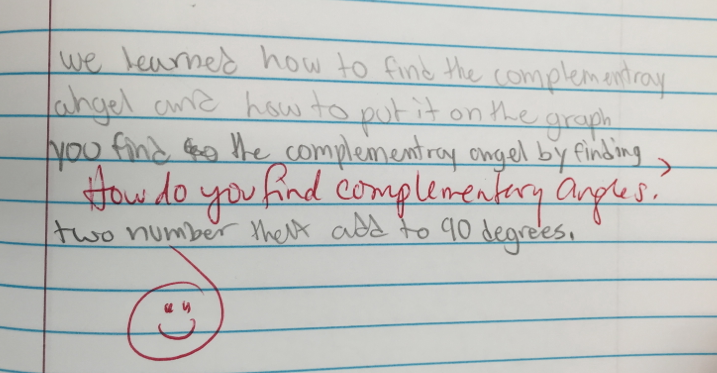 we learned how to find the complementray
angel and how to put it on the graph
you find the complementray angel by finding
How do you find complementary angles.
two number thet add to 90 degrees.